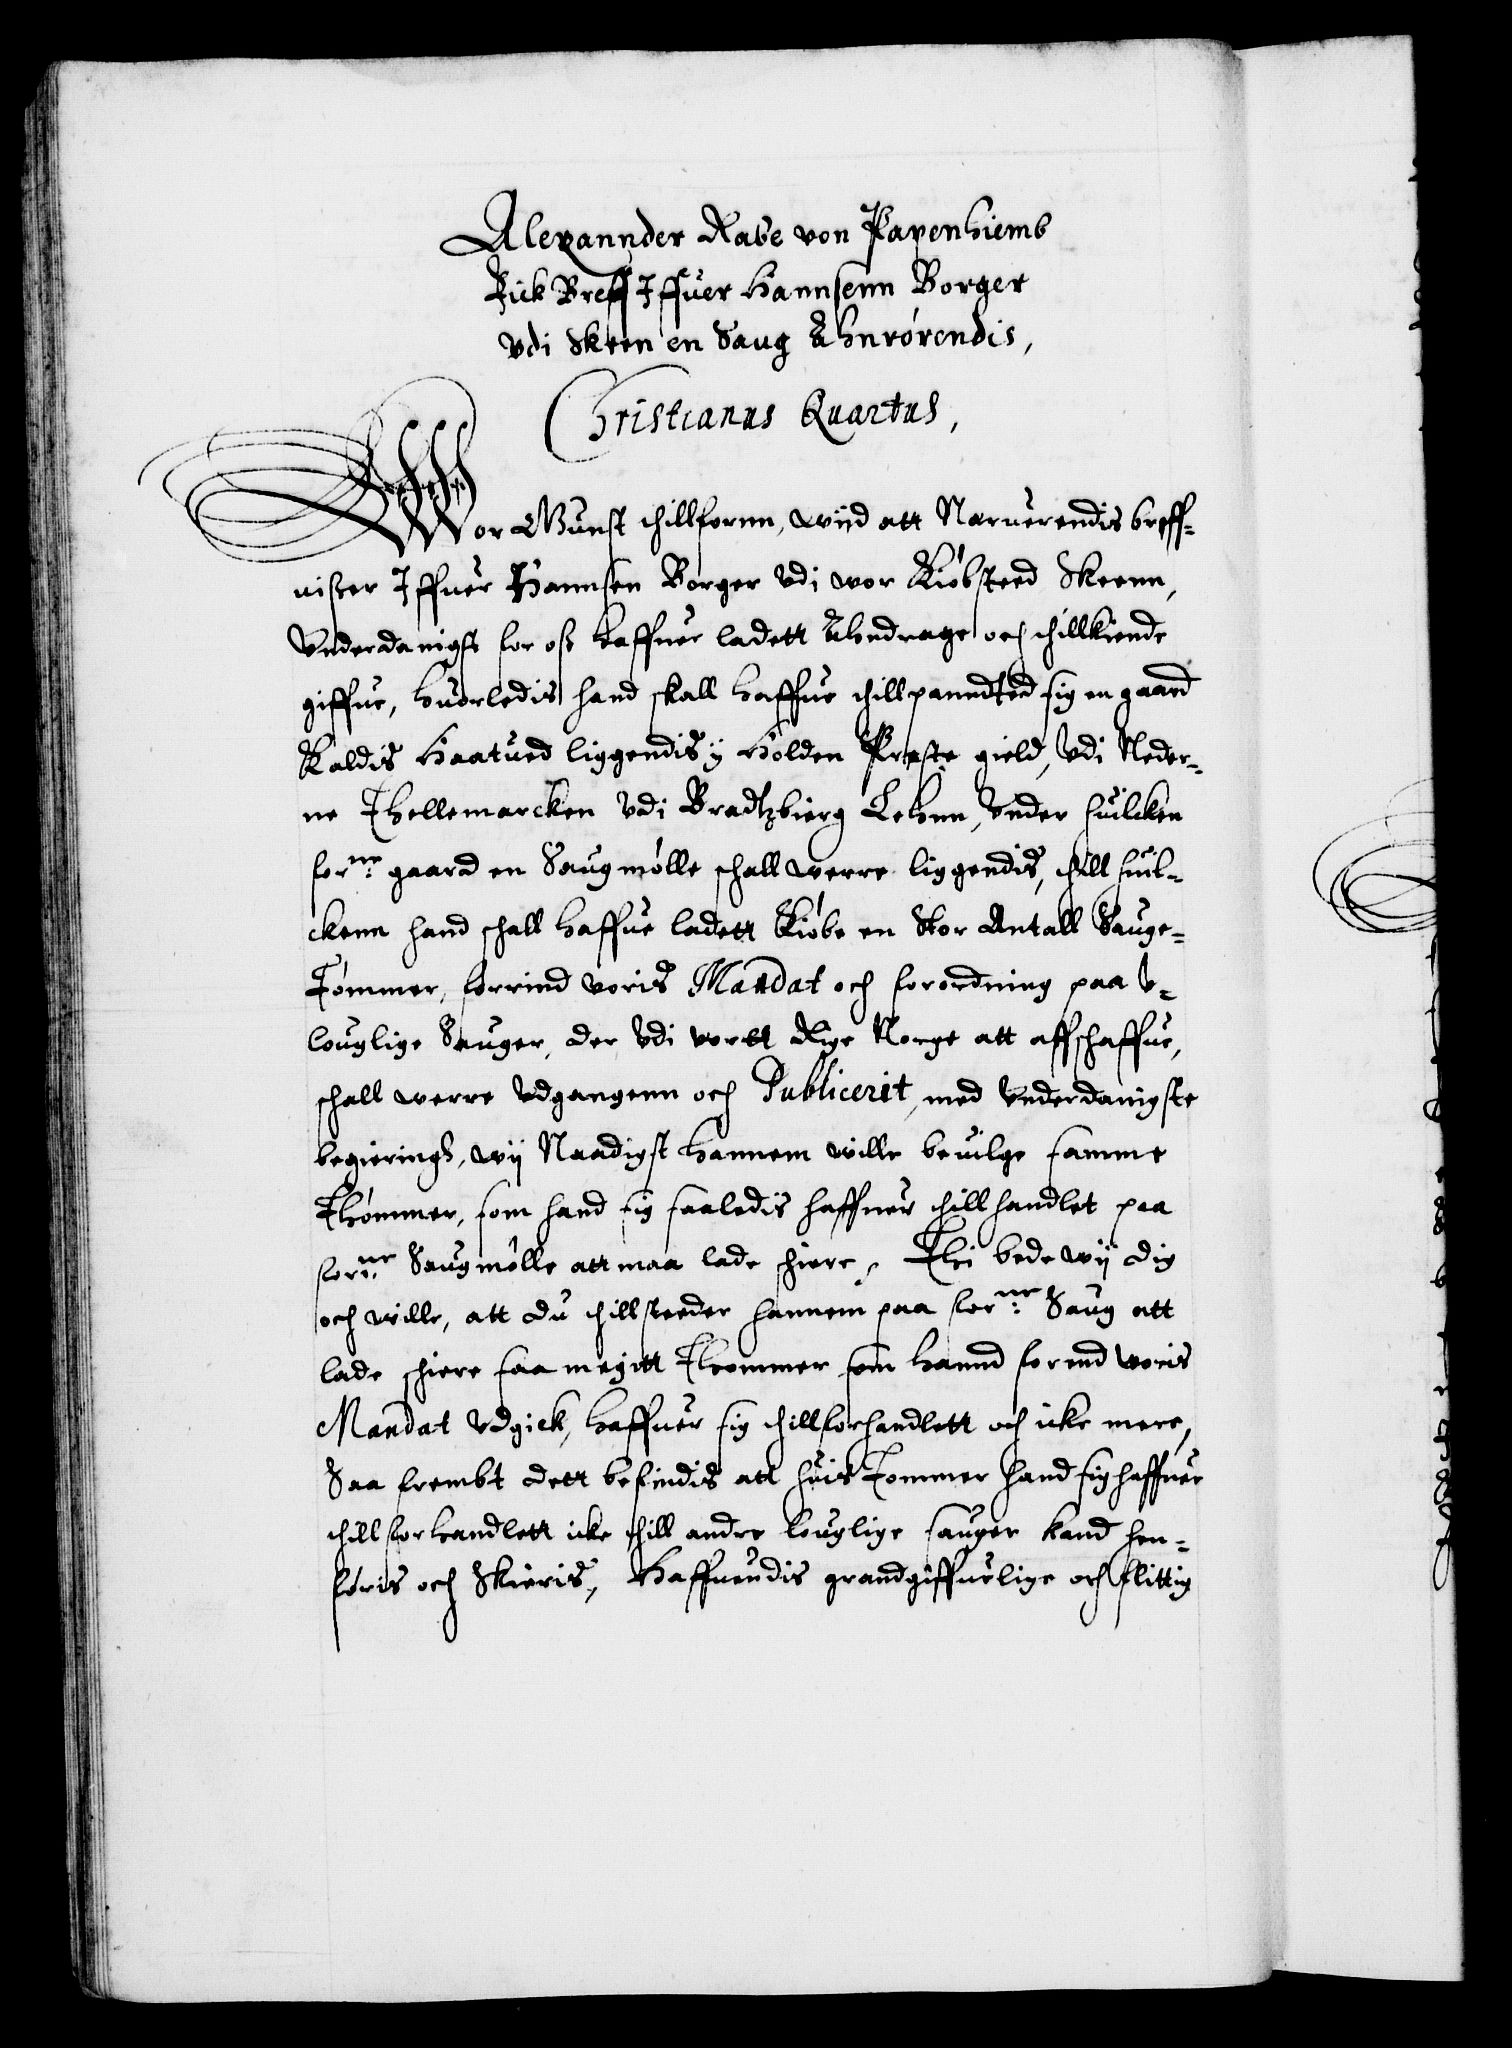 Alexannder Rabe von Papenhiemb
Fick Breff Iffuer Hannsenn Borger
Vdi Skeen en Saug Ahnrørendis,
Christianus Quartus,
Wor Gunst thillfornn, wiid att Naruerendis breff-
uiszer Iffuer Hannsen Borger Vdi wor Kiøbsteed Skeenn,
Vnderdanigst for osz haffuer ladett Ahndrage och thillkiende
giffue, huorledis hand skall haffue thillpanndted sig en gaard
Kaldis Haatued liggendis ij Holden Præste gield, Vdi Neder-
ne Thellemarcken Vdi Bradtzbierg Lehnn, Vnder huilcken
forne: gaard en Saugmølle schall werre liggendis, thill huil-
ckenn hand schall haffue ladett Kiøbe en Stor Antall Sauge-
Tømmer, forrind voris Mandat och forordning paa v-
louglige Sauger, der Vdi vortt Rige Norge att affschaffue,
schall werre Vdgangenn och Publicerit, med Vnderdanigste
begiering, wij Naadigst hannem wille beuilge samme
Thømmer, som hand sig saaledis haffuer thillhandlet paa
forne: Saugmølle att maa lade schiere, Thi bede wij dig
och wille, att du thillsteeder hannem paa forne: Saug att
lade schiere saa megitt Thommer som hannd forend woris
Mandat Vdgick, haffuer sig thillforhandlett och icke mere,
Saa frembt dett befindis att huis Tommer hand sig haffuer
thillforhandlett icke thill andre louglige sauger kand hen-
føris och Skieris, Haffuendis grandgiffuelige och flittig